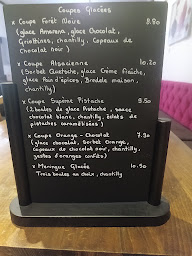 Coupes Glacées
x Coupe Forêt Noire 8.90
(glace Amarena, glace Chocolat,
Griottines, chantilly, Copeaux de
chocolat noir)
x Coupe Alsacienne 10.20
(Sorbet Quetsche, glace Crème fraîche,
glace Pain d'épices, Bredele maison,
chantilly)
x Coupe Suprême Pistache 9.50
(2 boules de glace Pistache, sauce
chocolat blanc, chantilly, éclats de
pistaches caramélisées)
x Coupe Orange - Chocolat 7.90
(glace chocolat, Sorbet Orange,
copeaux de chocolat noir, chantilly,
zestes d'oranges confits)
x Meringue Glacée 10.50
Trois boules au choix, chantilly